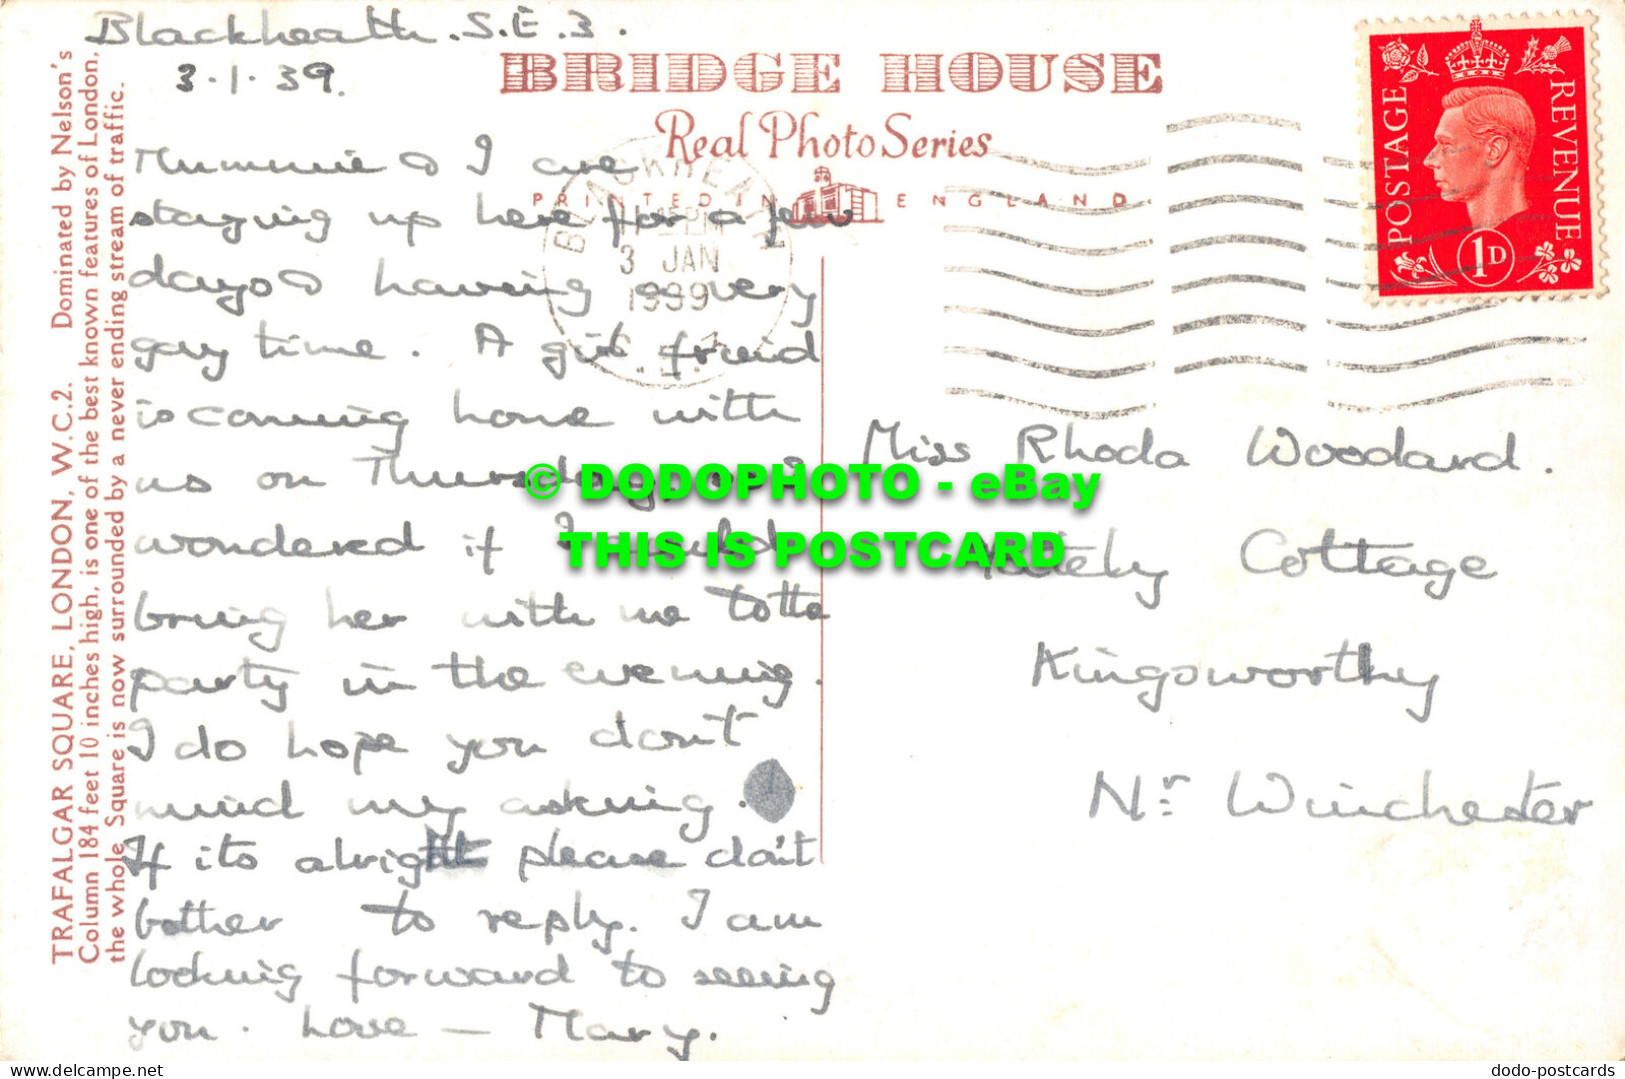 Blackheath. S.E.3.
3.1.39.
Mummie & I are
staying up here for a few
days & having a very
gay time. A girl friend
is coming home with
us on Thursday, and
wondered if I could
bring her with me to the
party in the evening.
I do hope you don't
mind my asking.
If its alright please don't
bother to reply. I am
looking forward to seeing
you. Love — Mary.
BRIDGE HOUSE
Real Photo Series
PRINTED IN ENGLAND
BLACKHEATH
3 JAN
1939
S.E.3
POSTAGE REVENUE
1D
Miss Rhoda Woodard.
Cottage
Kingsworthy
Nr. Winchester
TRAFALGAR SQUARE, LONDON, W.C.2. Dominated by Nelson's
Column 184 feet 10 inches high, is one of the best known features of London,
the whole Square is now surrounded by a never ending stream of traffic.
© DODOPHOTO - eBay
THIS IS POSTCARD
delcampe.net
dodo-postcards